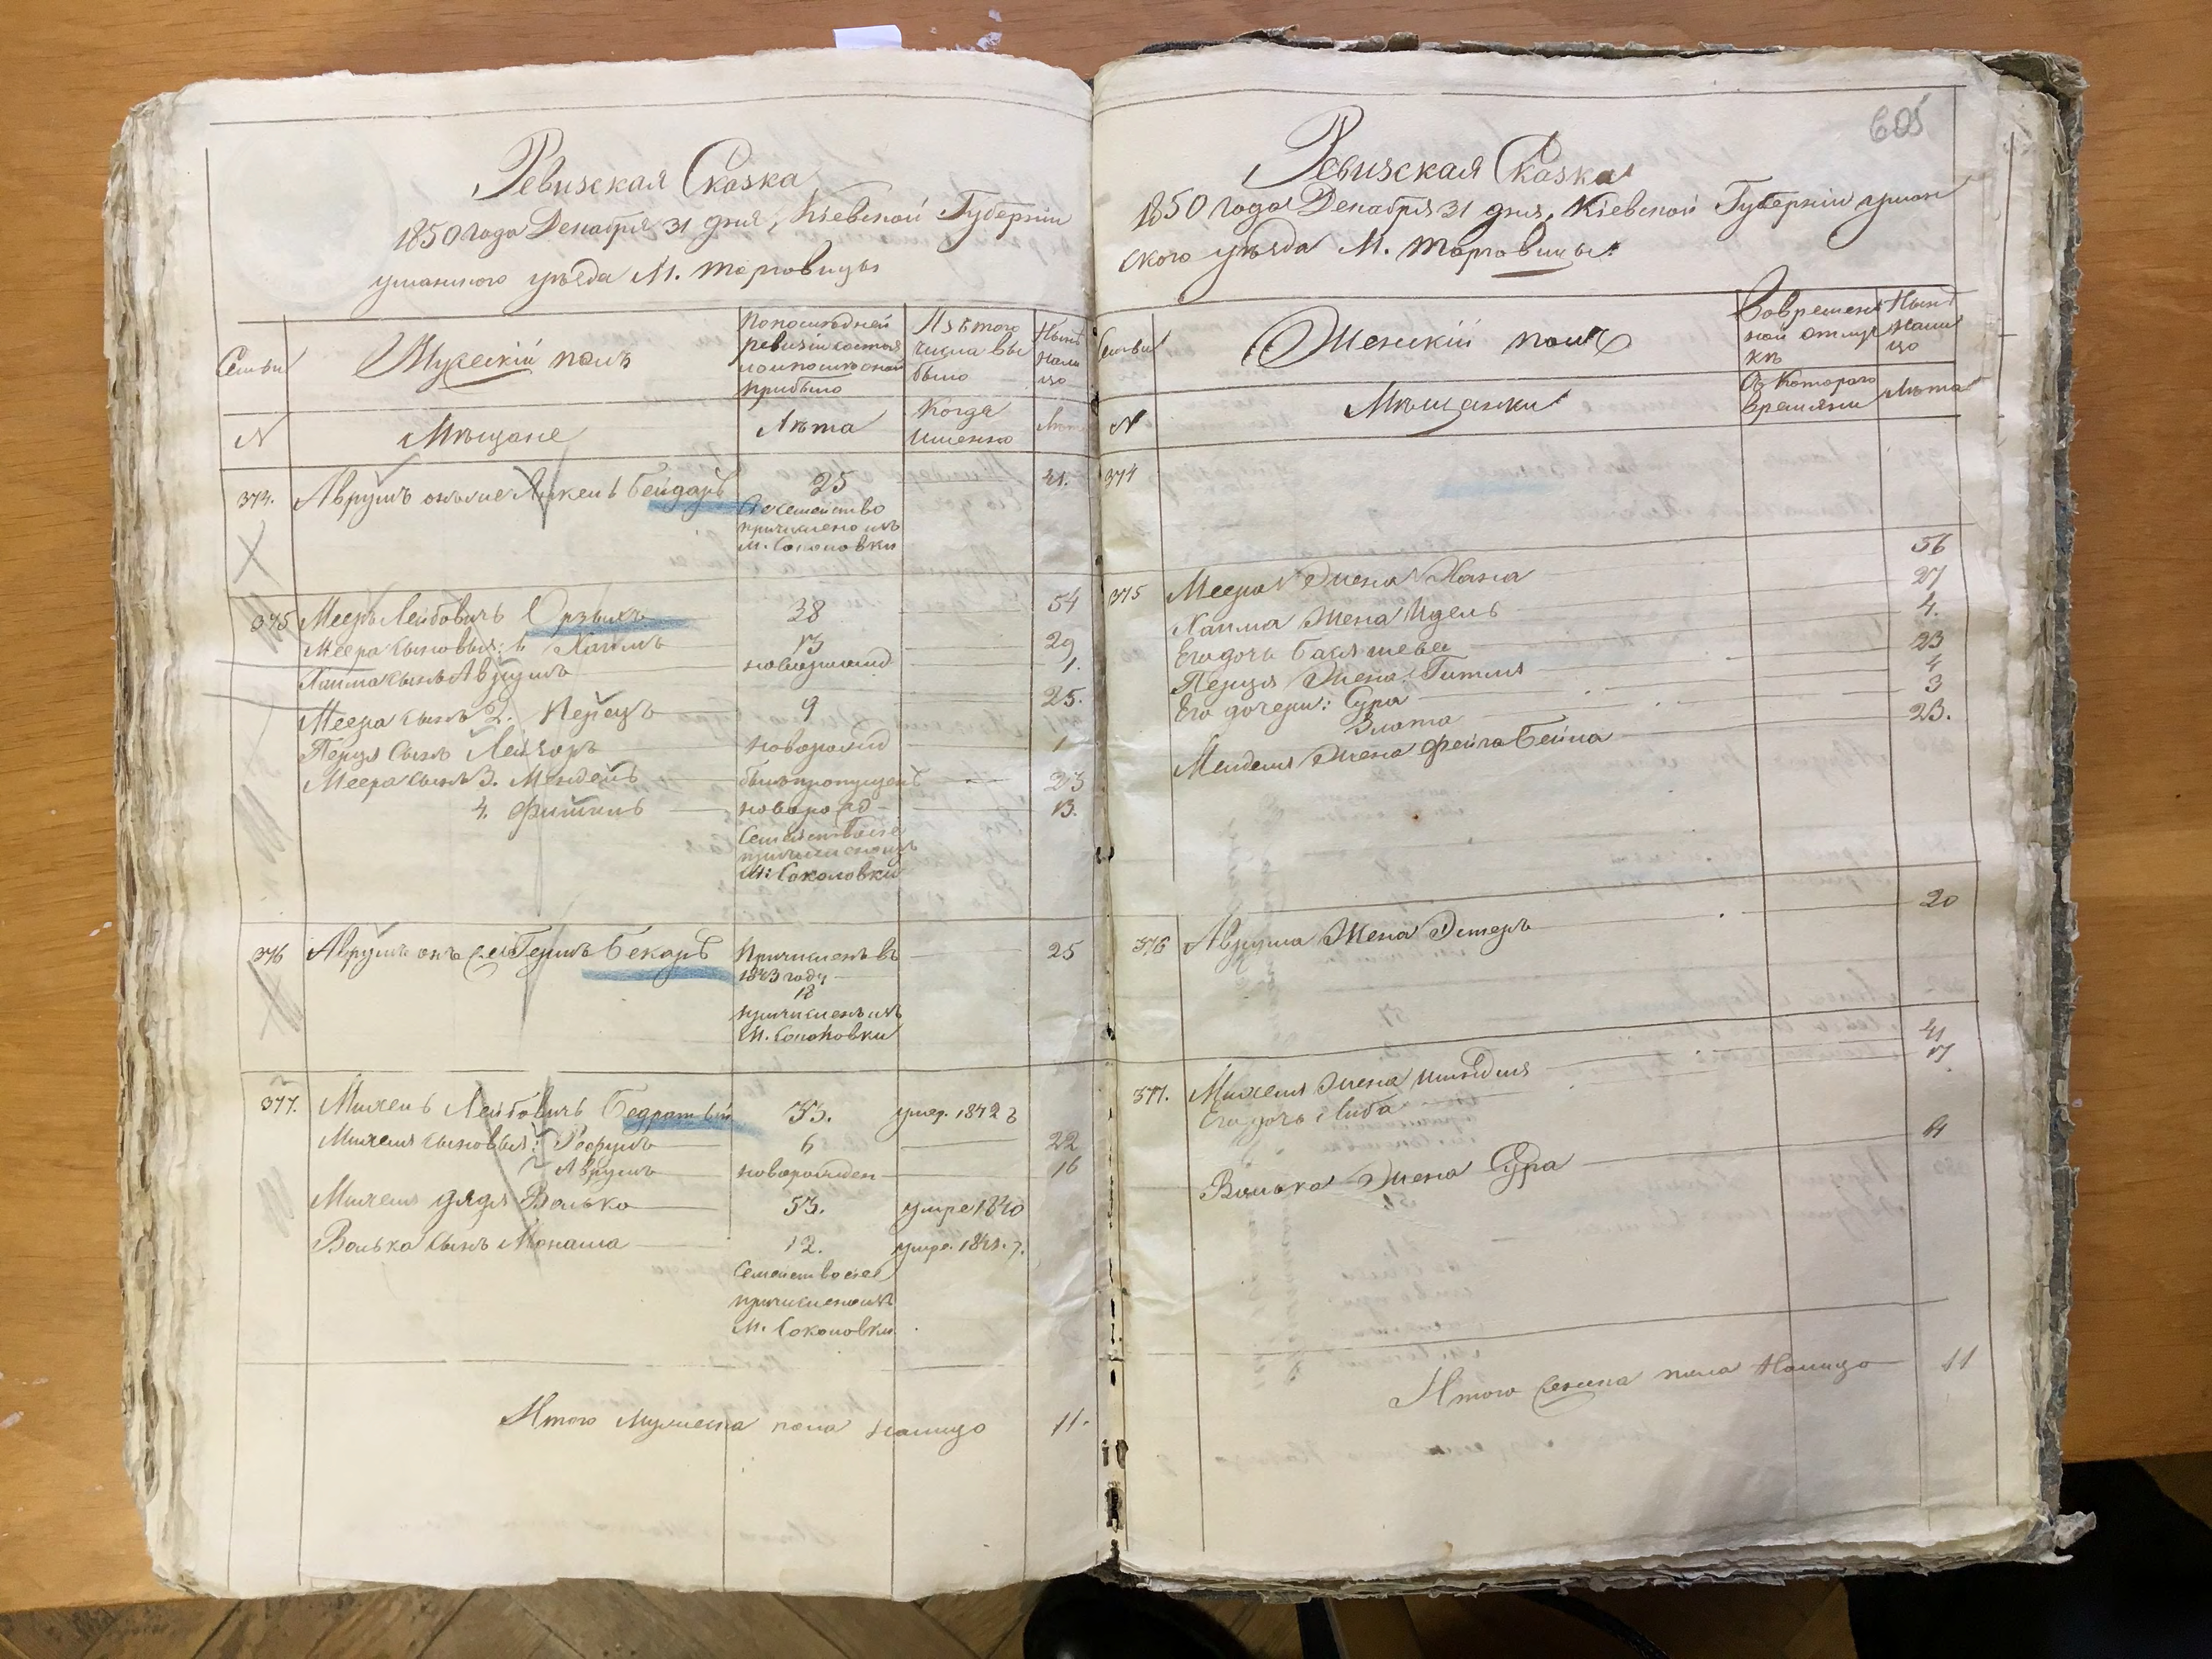 Ревизская Сказка
1850 года Декабря 31 дня, Кіевской Губерніи
уманского уѣзда М. Торговицы
Семьи
Мужескій полъ
По последней
ревизіи состоя
ло и после оной
прибыло
Изъ того
числа вы
было
Нынѣ
нали
цо
N
Мѣщане
Лѣта
Когда
именно
Лѣта
374.
Аврумъ Янкель Бейдаръ
25
41.
семейство
причислено изъ
м. Соколовки
375
Мееръ Лейбовичъ
38
54
Меера сыновья: 1 Хаимъ
13
29
Хаима сынъ Аврумъ
новорожд
1.
Меера сынъ 2. Перецъ
9
25.
Перца сынъ Лейзоръ
новорожд
1
Меера сынъ 3. Мендель
былъ пропущенъ
23
4. Фишель
новорожд
13.
Семейство сіе
причислено изъ
М: Соколовки
376
Аврумъ онъ же Гершъ Бекаръ
Причисленъ въ
1843 году
18
25
причисленъ изъ
М. Соколовки
377.
Михель Лейбовичъ Бедратый
33.
умер. 1842 г
Михеля сыновья: Рефумъ
6
22
Аврумъ
новорожден
16
Михеля дядя Волько
53.
умре 1840
Волька сынъ Монаша
12.
умре. 1841. г.
Семейство сіе
причислено изъ
М. Соколовки
Итого мужеска пола налицо
11.
605
Ревизская Сказка
1850 года Декабря 31 дня, Кіевской Губерніи уман
ского уѣзда М. Торговицы.
Семьи
Женскій полъ
Во времен
ной отлуч
кѣ
Нынѣ
нали
цо
N
Мѣщанки
Съ которого
времяни
Лѣта
374
375
Меера Жена Хана
56
Хаима Жена Идель
27
Его дочь Басяшева
4.
Перца Жена Гитля
23
Его дочери: Сура
4
Злата
3
Менделя Жена Фейга Бейла
23.
376
Аврума Жена Эстеръ
20
377.
Михеля Жена Шейндля
41
Его дочь Либа
17
Волька Жена Сура
Итого женска пола налицо
11